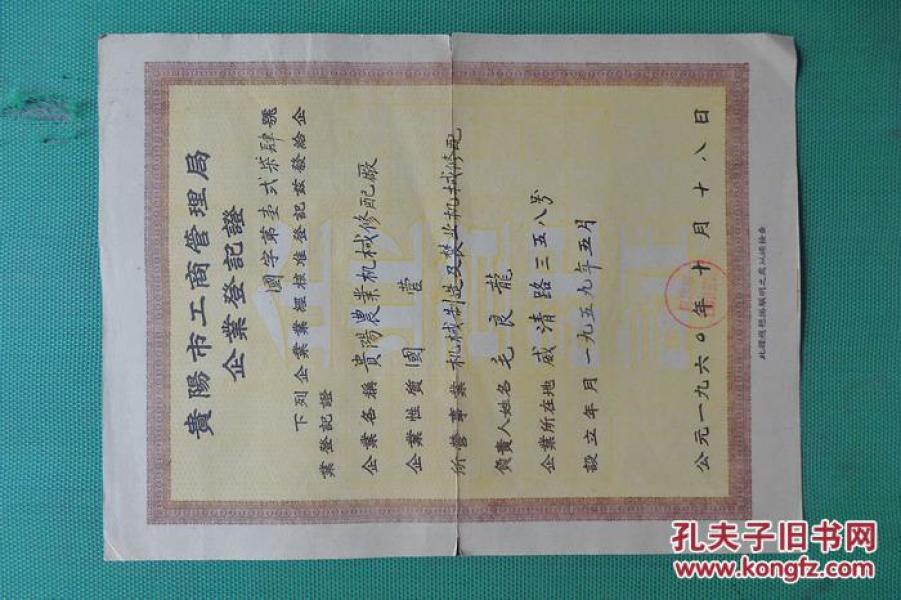 貴陽市工商管理局
企業登記證
國字第壹弍柒肆號
下列企業業經核准登記茲發給企
業登記證
企業名稱 貴陽農業机械修配廠
企業性質 國營
所營事業 机械制造及農业机械修配
負責人姓名 毛良龍
企業所在地 威清路三五八号
設立年月 一九五九年五月
公元一九六〇年十月十八日
孔夫子旧书网
www.kongfz.com